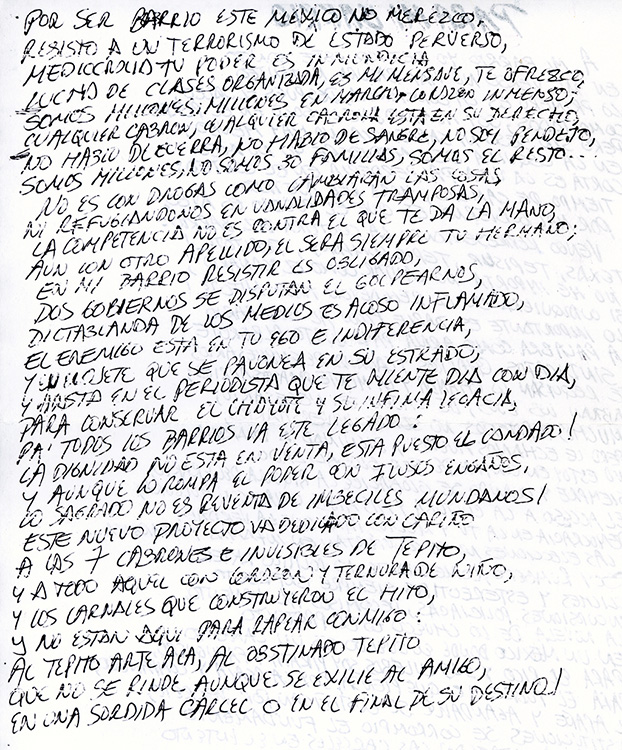 POR SER BARRIO ESTE MEXICO NO MEREZCO,
RESISTO A UN TERRORISMO DE ESTADO PERVERSO,
MEDIOCRIDAD TU PODER ES INMUNDICIA
LUCHA DE CLASES ORGANIZADA, ES MI MENSAJE, TE OFREZCO,
SOMOS MILLONES, MILLONES EN MARCHA, CORAZON INMENSO;
CUALQUIER CABRON, CUALQUIER CABRONA ESTA EN SU DERECHO,
NO HABLO DE GUERRA, NO HABLO DE SANGRE, NO SOY PENDEJO,
SOMOS MILLONES, NO SOMOS 30 FAMILIAS, SOMOS EL RESTO...
NO ES CON DROGAS COMO CAMBIARAN LAS COSAS,
NI REFUGIANDONOS EN VANALIDADES TRAMPOSAS,
LA COMPETENCIA NO ES CONTRA EL QUE TE DA LA MANO,
AUN CON OTRO APELLIDO, EL SERA SIEMPRE TU HERMANO;
EN MI BARRIO RESISTIR ES OBLIGADO,
DOS GOBIERNOS SE DISPUTAN EL GOLPEARNOS,
DICTABLANDA DE LOS MEDIOS ES ACOSO INFLAMADO,
EL ENEMIGO ESTA EN TU EGO E INDIFERENCIA,
Y EN EL JETE QUE SE PAVONEA EN SU ESTRADO,
Y HASTA EN EL PERIODISTA QUE TE MIENTE DIA CON DIA,
PARA CONSERVAR EL CHAYOTE Y SU INFIMA LEGACIA,
PA' TODOS LOS BARRIOS VA ESTE LEGADO:
LA DIGNIDAD NO ESTA EN VENTA, ESTA PUESTO EL CANDADO!
Y AUNQUE LO ROMPA EL PODER CON ILUSOS ENGAÑOS,
LO SAGRADO NO ES REVENTA DE IMBECILES MUNDANOS!
ESTE NUEVO PROYECTO VA DEDICADO CON CARIÑO
A LAS 7 CABRONES E INVISIBLES DE TEPITO,
Y A TODO AQUEL CON CORAZON Y TERNURA DE NIÑO,
Y LOS CARNALES QUE CONSTRUYERON EL HITO,
Y NO ESTAN AQUI PARA RAPEAR CONMIGO:
AL TEPITO ARTE ACA, AL OBSTINADO TEPITO
QUE NO SE RINDE AUNQUE SE EXILIE AL AMIGO,
EN UNA SORDIDA CARCEL O EN EL FINAL DE SU DESTINO!